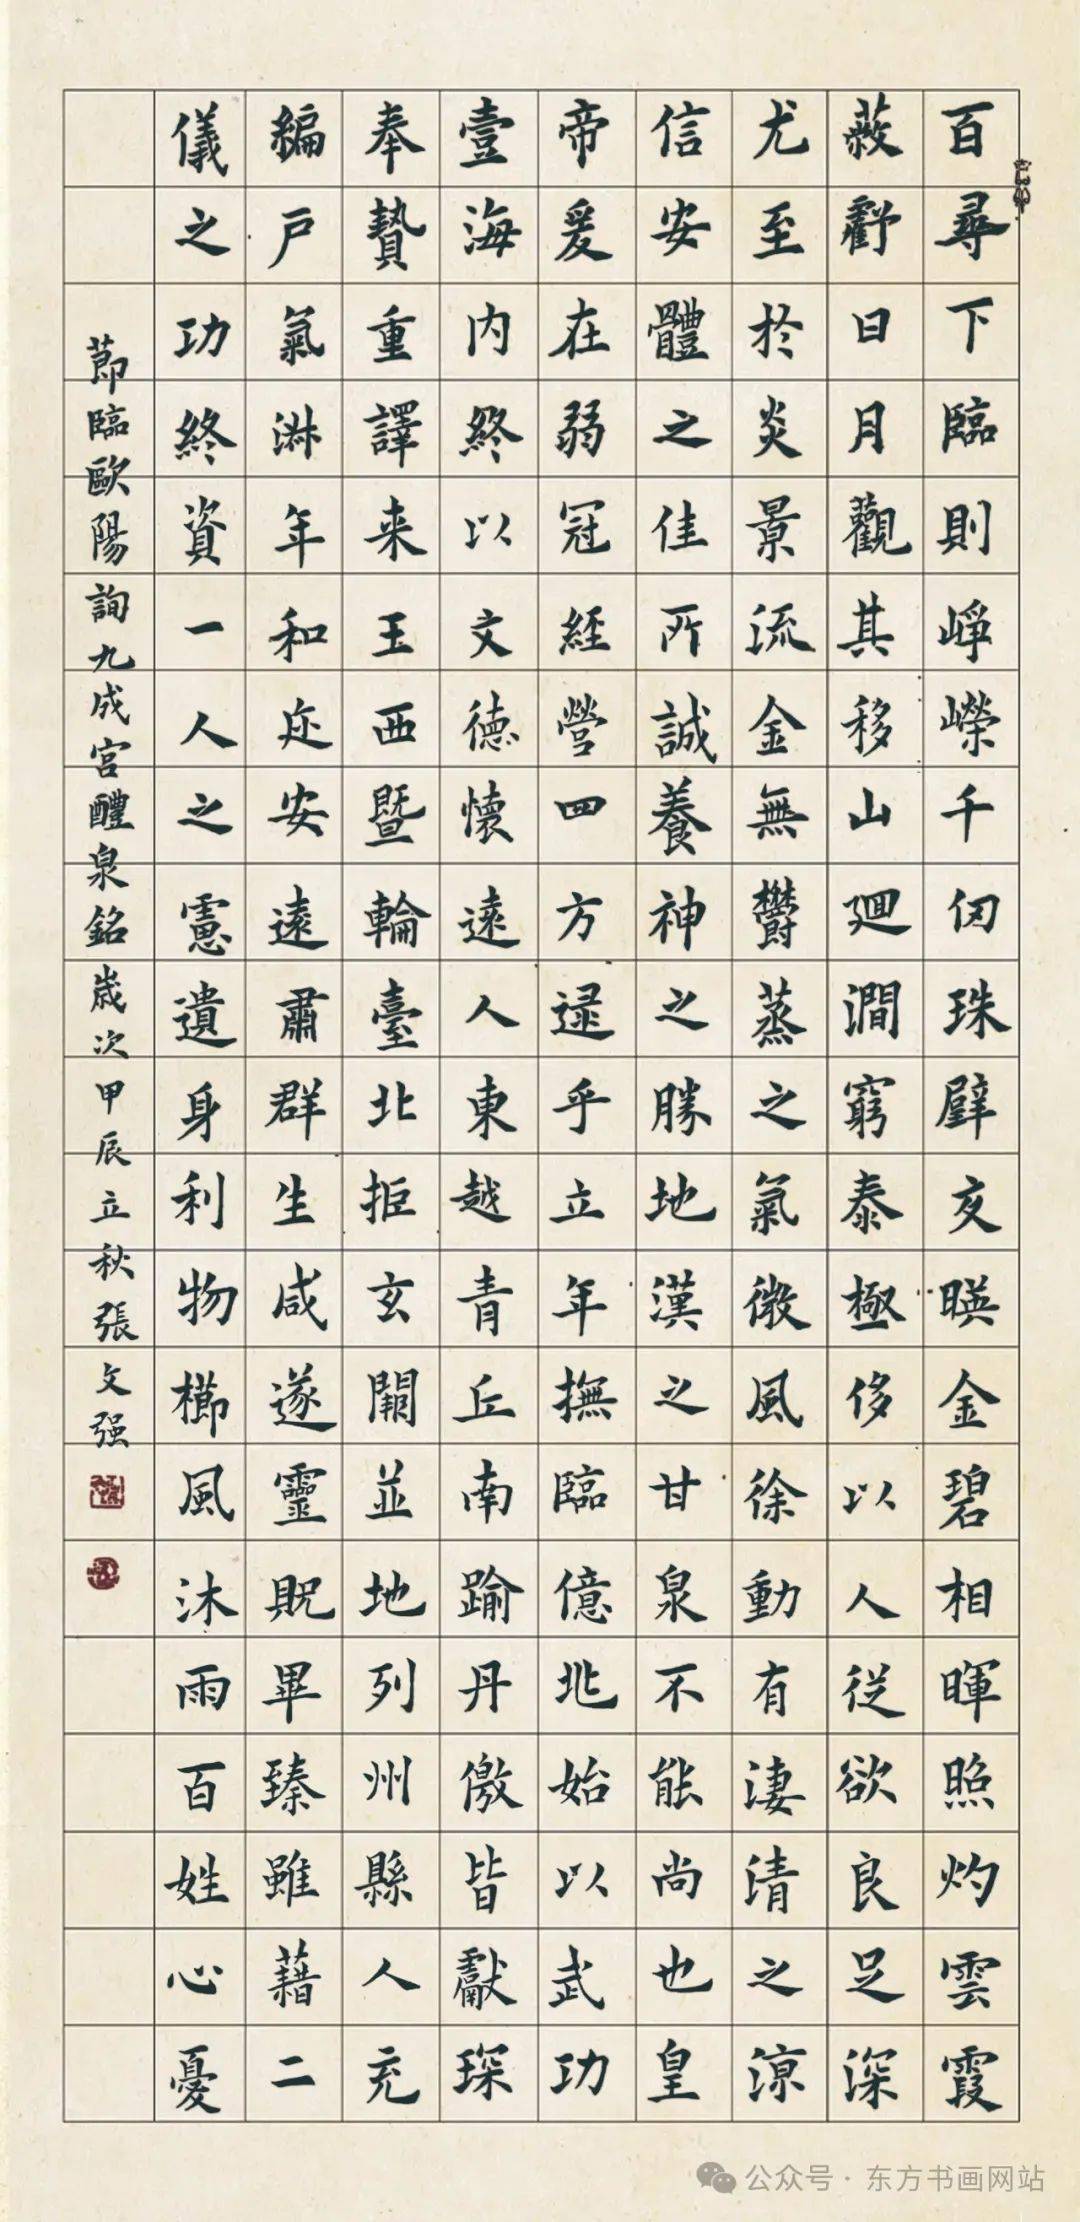 百尋下臨則崢嶸千仞珠壁交暎金碧相暉照灼雲霞
蔽虧日月觀其移山迴澗窮泰極侈以人從欲良足深
尤至於炎景流金無鬱蒸之氣微風徐動有淒清之涼
信安體之佳所誠養神之勝地漢之甘泉不能尚也皇
帝爰在弱冠經營四方逮乎立年撫臨億兆始以武功
壹海内終以文德懷遠人東越青丘南踰丹儌皆獻琛
奉贄重譯来王西暨輪臺北拒玄闕並地列州縣人充
編户氣淑年和迩安遠肅群生咸遂靈貺畢臻雖藉二
儀之功終資一人之慮遺身利物櫛風沐雨百姓心憂
節臨歐陽詢九成宮醴泉銘歲次甲辰立秋張文强
公众号·东方书画网站